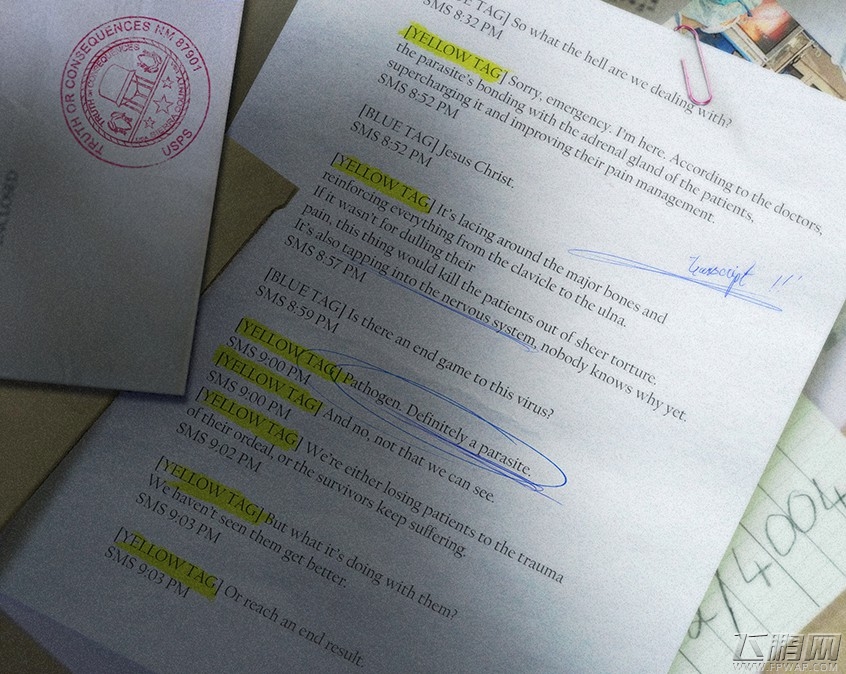 TRUTH OR CONSEQUENCES NM, 87901
USPS
TAG] So what the hell are we dealing with?
SMS 8:32 PM
[YELLOW TAG] Sorry, emergency. I'm here. According to the doctors,
the parasite's bonding with the adrenal gland of the patients,
supercharging it and improving their pain management.
SMS 8:52 PM
[BLUE TAG] Jesus Christ.
SMS 8:52 PM
[YELLOW TAG] It's lacing around the major bones and
reinforcing everything from the clavicle to the ulna.
If it wasn't for dulling their
pain, this thing would kill the patients out of sheer torture.
It's also tapping into the nervous system, nobody knows why yet.
SMS 8:57 PM
Transcript
[BLUE TAG] Is there an end game to this virus?
SMS 8:59 PM
[YELLOW TAG] Pathogen. Definitely a parasite.
SMS 9:00 PM
[YELLOW TAG] And no, not that we can see.
SMS 9:00 PM
[YELLOW TAG] We're either losing patients to the trauma
of their ordeal, or the survivors keep suffering.
SMS 9:02 PM
[YELLOW TAG] But what it's doing with them?
We haven't seen them get better.
SMS 9:03 PM
[YELLOW TAG] Or reach an end result.
SMS 9:03 PM
/4004
飞鹏网
WWW.FPWAP.COM